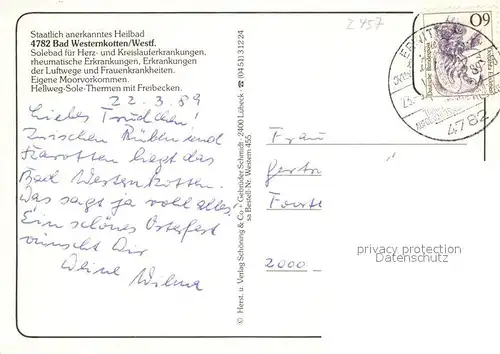 Staatlich anerkanntes Heilbad
4782 Bad Westernkotten/Westf.
Solebad für Herz- und Kreislauferkrankungen,
rheumatische Erkrankungen, Erkrankungen
der Luftwege und Frauenkrankheiten.
Eigene Moorvorkommen.
Hellweg-Sole-Thermen mit Freibecken.
22.3.89
Liebes Trudchen!
Zwischen Rüben und
Karotten liegt das
Bad Westernkotten.
Was sagt ja wohl alles!
Ein schönes Osterfest
wünscht Dir
Deine Wilma
© Herst. u. Verlag Schöning & Co · Gebrüder Schmidt · 2400 Lübeck · ☎ (0451) 31224
sa Bestell-Nr. Western 455
Z 457
60
Deutsche Bundespost
4782
Frau
Gertr
2000
privacy protection
Datenschutz